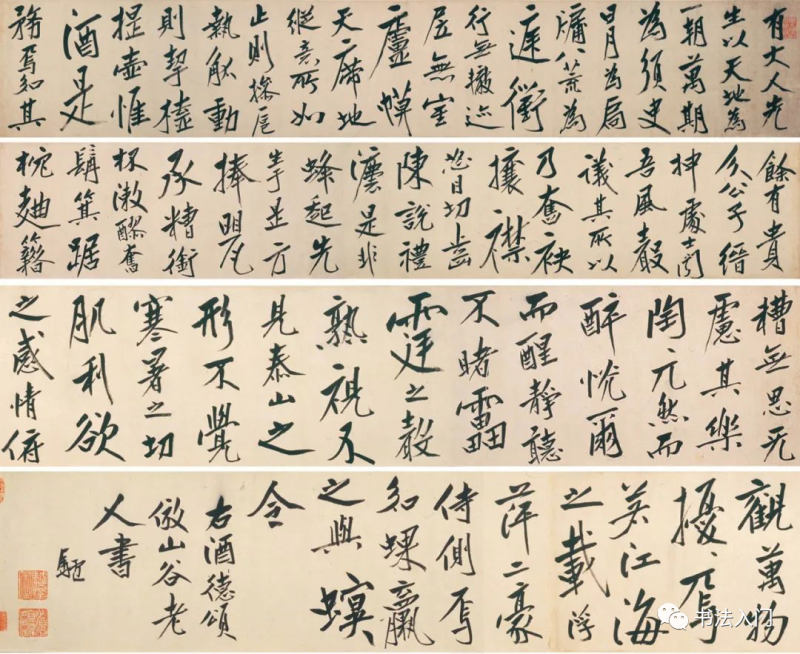 有大人先
生以天地為
一朝萬期
為須臾
日月為扃
牖八荒為
庭衢
行無轍迹
居無室
廬幙
天席地
縱意所如
止則操卮
執觚動
則挈榼
提壺惟
酒是
務焉知其
餘有貴
介公子縉
紳處士聞
吾風聲
議其所以
乃奮袂
攘襟
怒目切齒
陳說禮
灋是非
蜂起先
生於是方
捧甖
承糟銜
杯漱醪奮
髯箕踞
枕麴籍
糟無思无
慮其樂
陶〻兀然而
醉怳爾
而醒靜聽
不睹雷
霆之聲
熟視不
見泰山之
形不覺
寒暑之切
肌利欲
之感情俯
觀萬物
擾〻焉
若江海
之載浮
萍二豪
侍側焉
如蜾蠃
之與螟
令
右酒德頌
倣山谷老
人書
书法入门